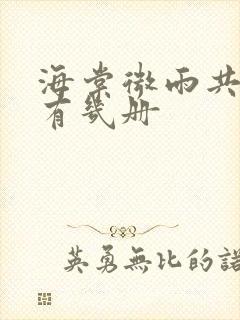 海棠微雨共
有幾册
英勇無比的諾